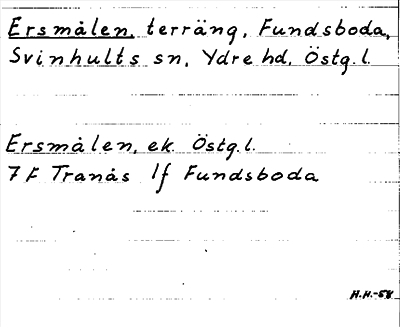 Ersmålen, terräng, Fundsboda,
Svinhults sn, Ydre hd, Östg.l.
Ersmålen, ek. Östg.l.
7 F Tranås 1f Fundsboda
H.H.-58